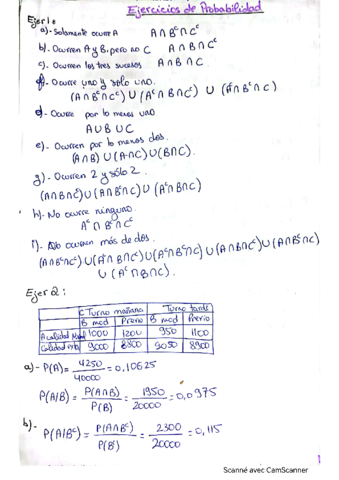 Ejercicios de Probabilidad
Ejer 1:
a)- Solamente ocurre A A∩Bᶜ∩Cᶜ
b). Ocurren A y B, pero no C A∩B∩Cᶜ
c). Ocurren los tres sucesos A∩B∩C
f). Ocurre uno y solo uno.
(A∩Bᶜ∩Cᶜ) ∪ (Aᶜ∩B∩Cᶜ) ∪ (Aᶜ∩Bᶜ∩C)
d)- Ocurre por lo menos uno
A∪B∪C
e). Ocurren por lo menos dos.
(A∩B) ∪ (A∩C) ∪ (B∩C).
g)- Ocurren 2 y sólo 2.
(A∩B∩Cᶜ) ∪ (A∩Bᶜ∩C) ∪ (Aᶜ∩B∩C)
h)- No ocurre ninguno.
Aᶜ∩Bᶜ∩Cᶜ
i)- No ocurren más de dos.
(A∩Bᶜ∩Cᶜ) ∪ (Aᶜ∩B∩Cᶜ) ∪ (Aᶜ∩Bᶜ∩C) ∪ (A∩B∩Cᶜ) ∪ (A∩Bᶜ∩C)
∪ (Aᶜ∩B∩C).
Ejer 2:
C Turno mañana Turno tarde
B mod Previo B mod Previo
A calidad 1000 1200 950 1100
Calidad 9000 8800 9050 8900
a)- P(A) = 4250/40000 = 0,10625
P(A/B) = P(A∩B)/P(B) = 1950/20000 = 0,0975
b)- P(A/Bᶜ) = P(A∩Bᶜ)/P(Bᶜ) = 2300/20000 = 0,115
1
Scanné avec CamScanner